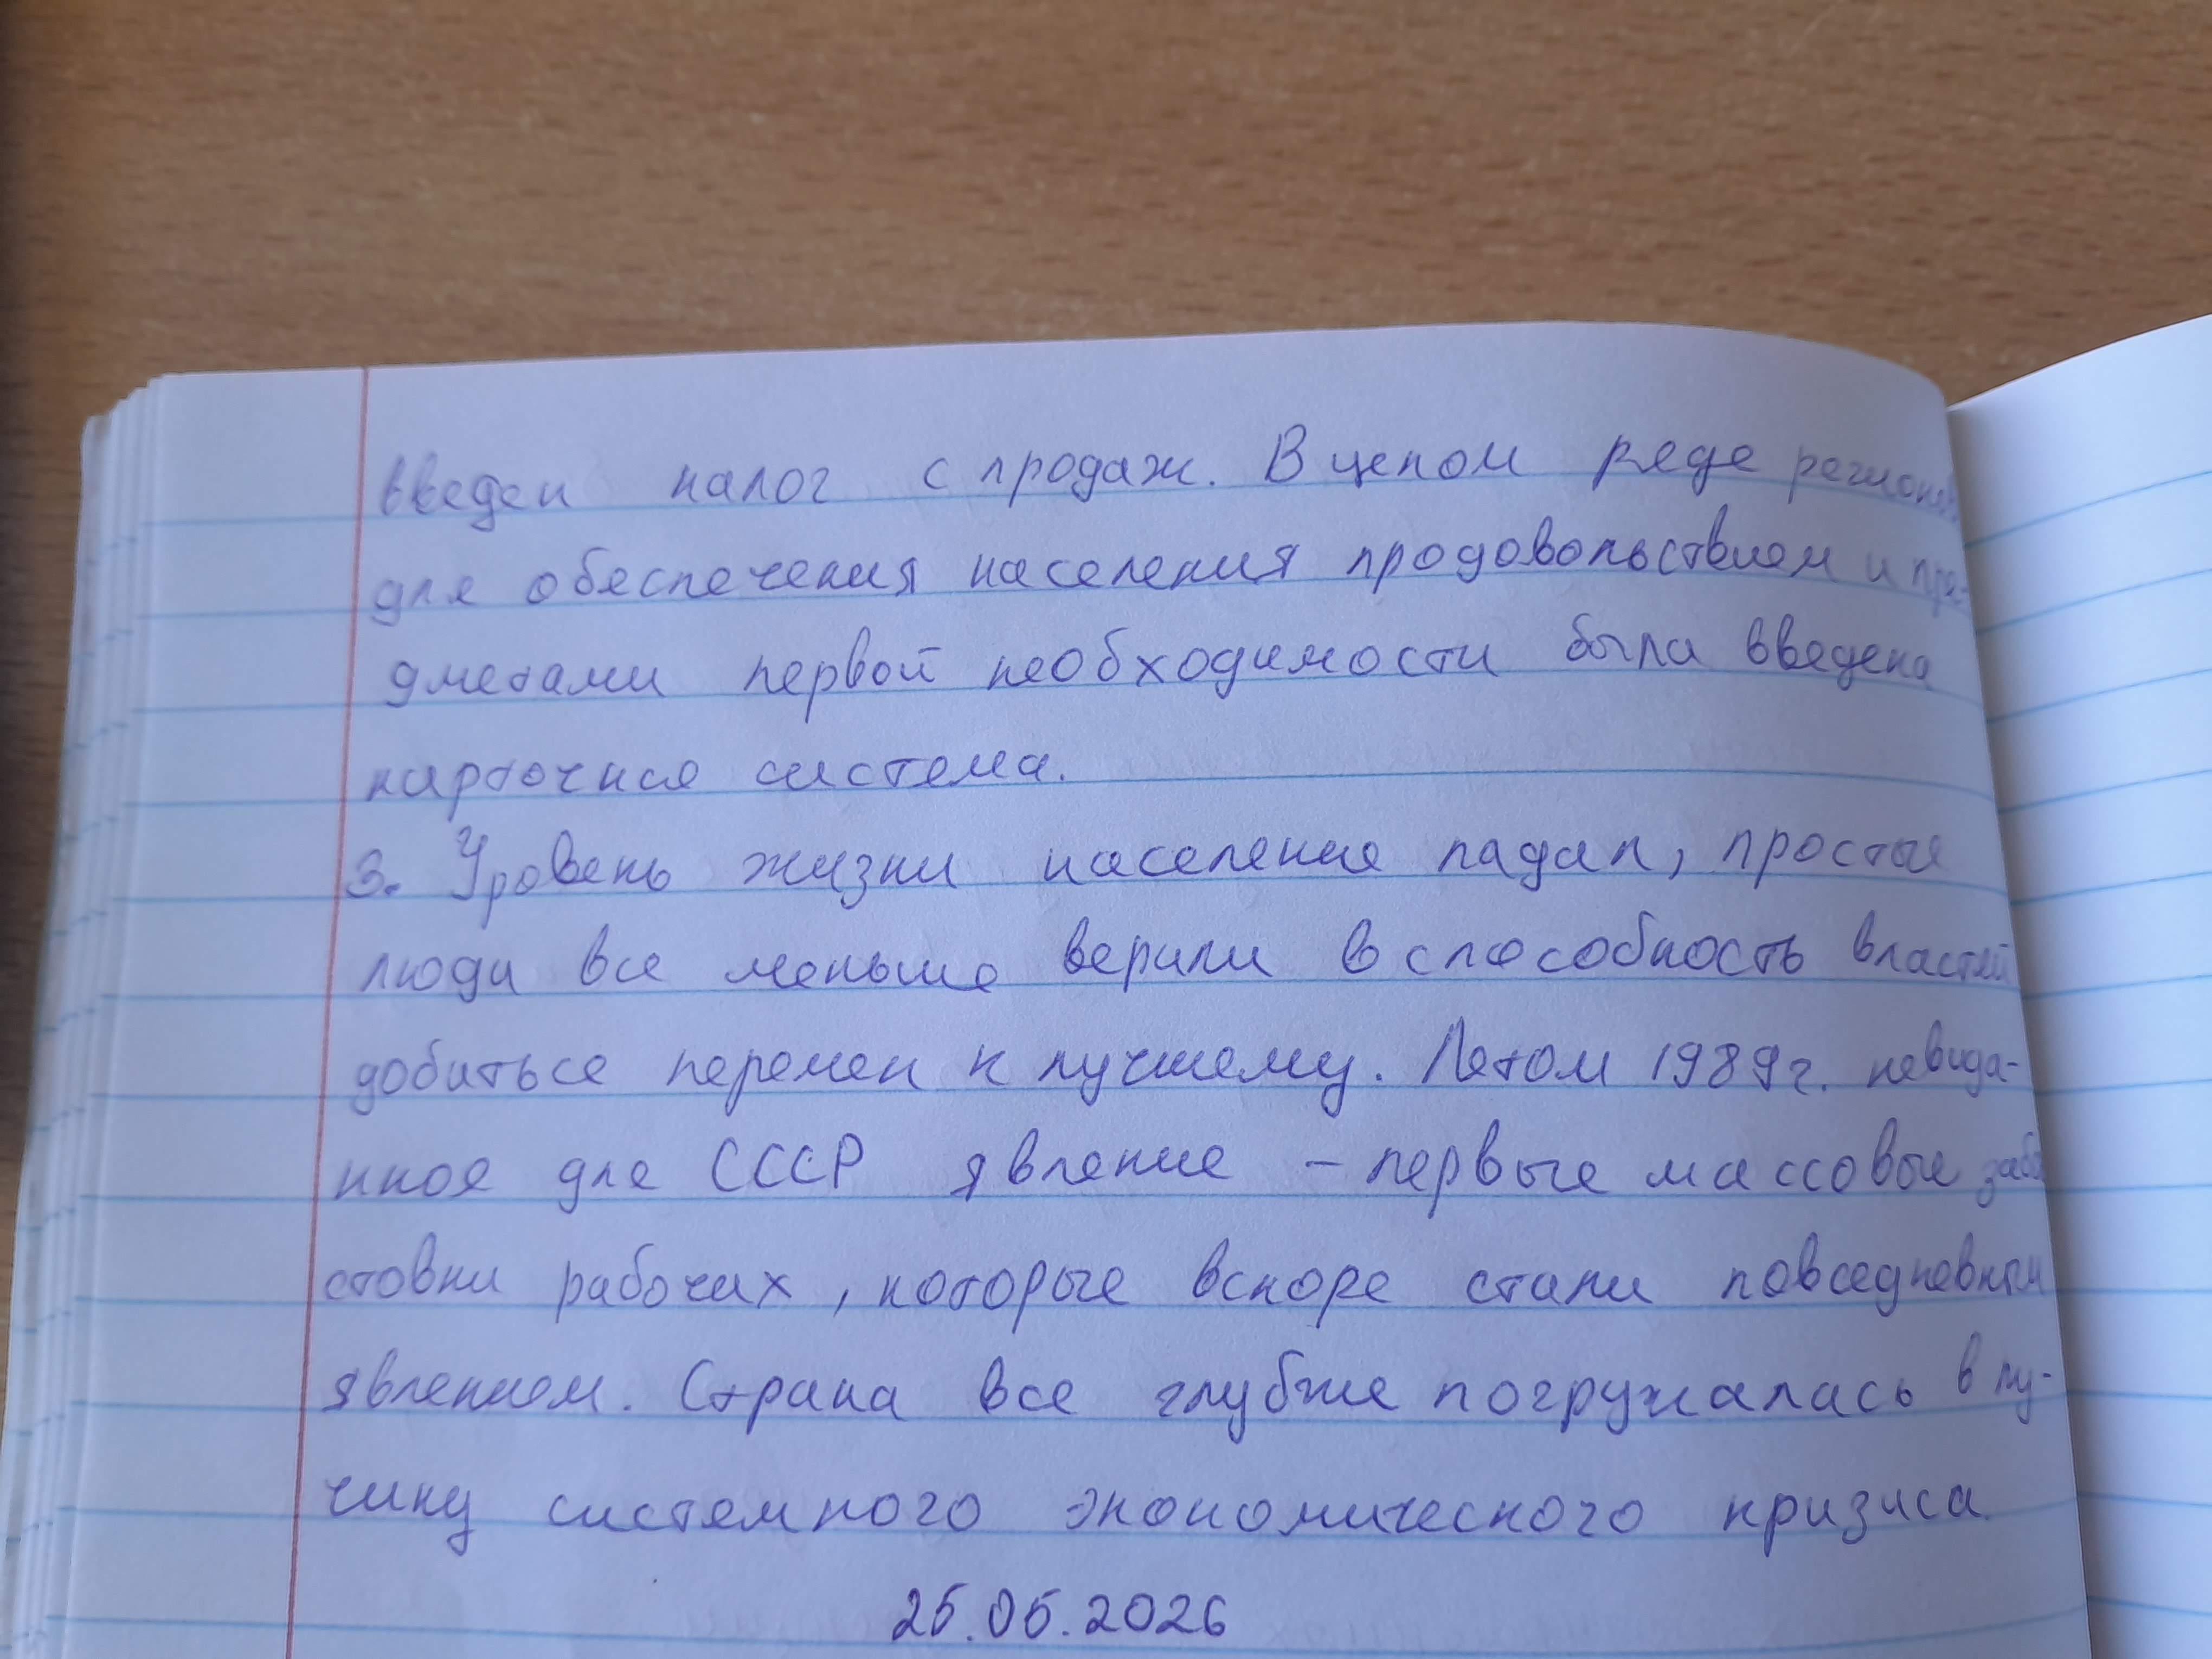 введен налог с продаж. В целом ряде регионов
для обеспечения населения продовольствием и пре-
дметами первой необходимости была введена
карточная система.
3. Уровень жизни населения падал, простые
люди все меньше верили в способность властей
добиться перемен к лучшему. Летом 1989 г. невида-
нное для СССР явление – первые массовые забо
стовки рабочих, которые вскоре стали повседневным
явлением. Страна все глубже погружалась в пу-
чину системного экономического кризиса.
25.05.2026